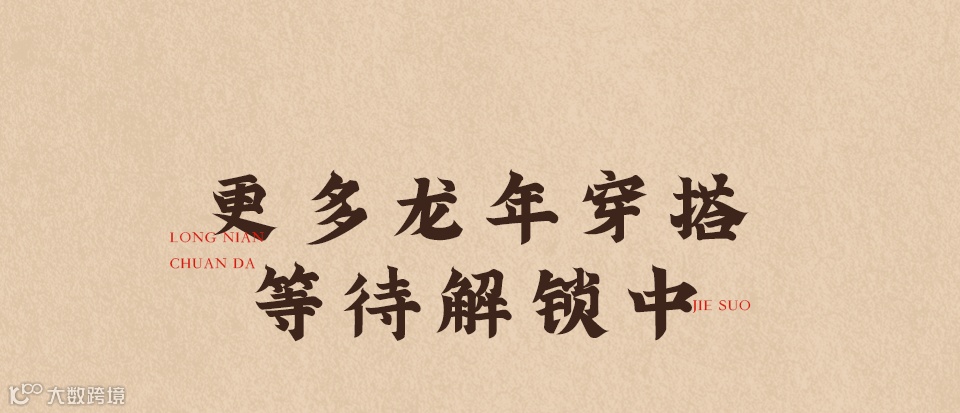 更多龙年穿搭
LONG NIAN
CHUAN DA
等待解锁中
JIE SUO
大数跨境